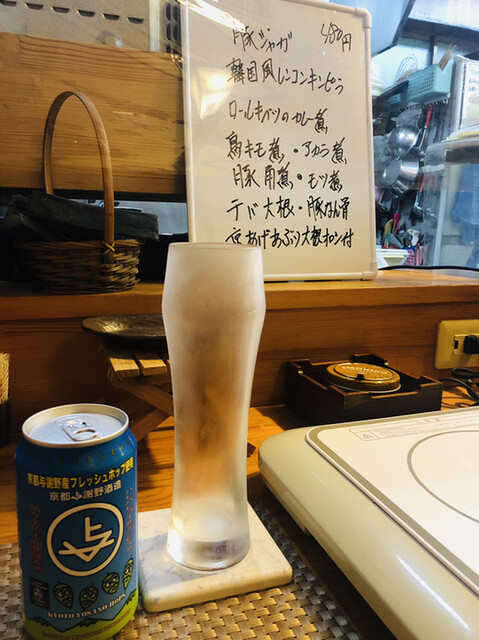 豚ジャガ 480円
韓国風レンコンキンピラ
ロールキャベツのカレー煮
鳥キモ煮・アカラ煮
豚角煮・モツ煮
テバ大根・豚なん骨
京あげあぶり大根オロシ付
京都与謝野産フレッシュホップ使用
京都与謝野酒造
KYOTO YOSANO HOPS